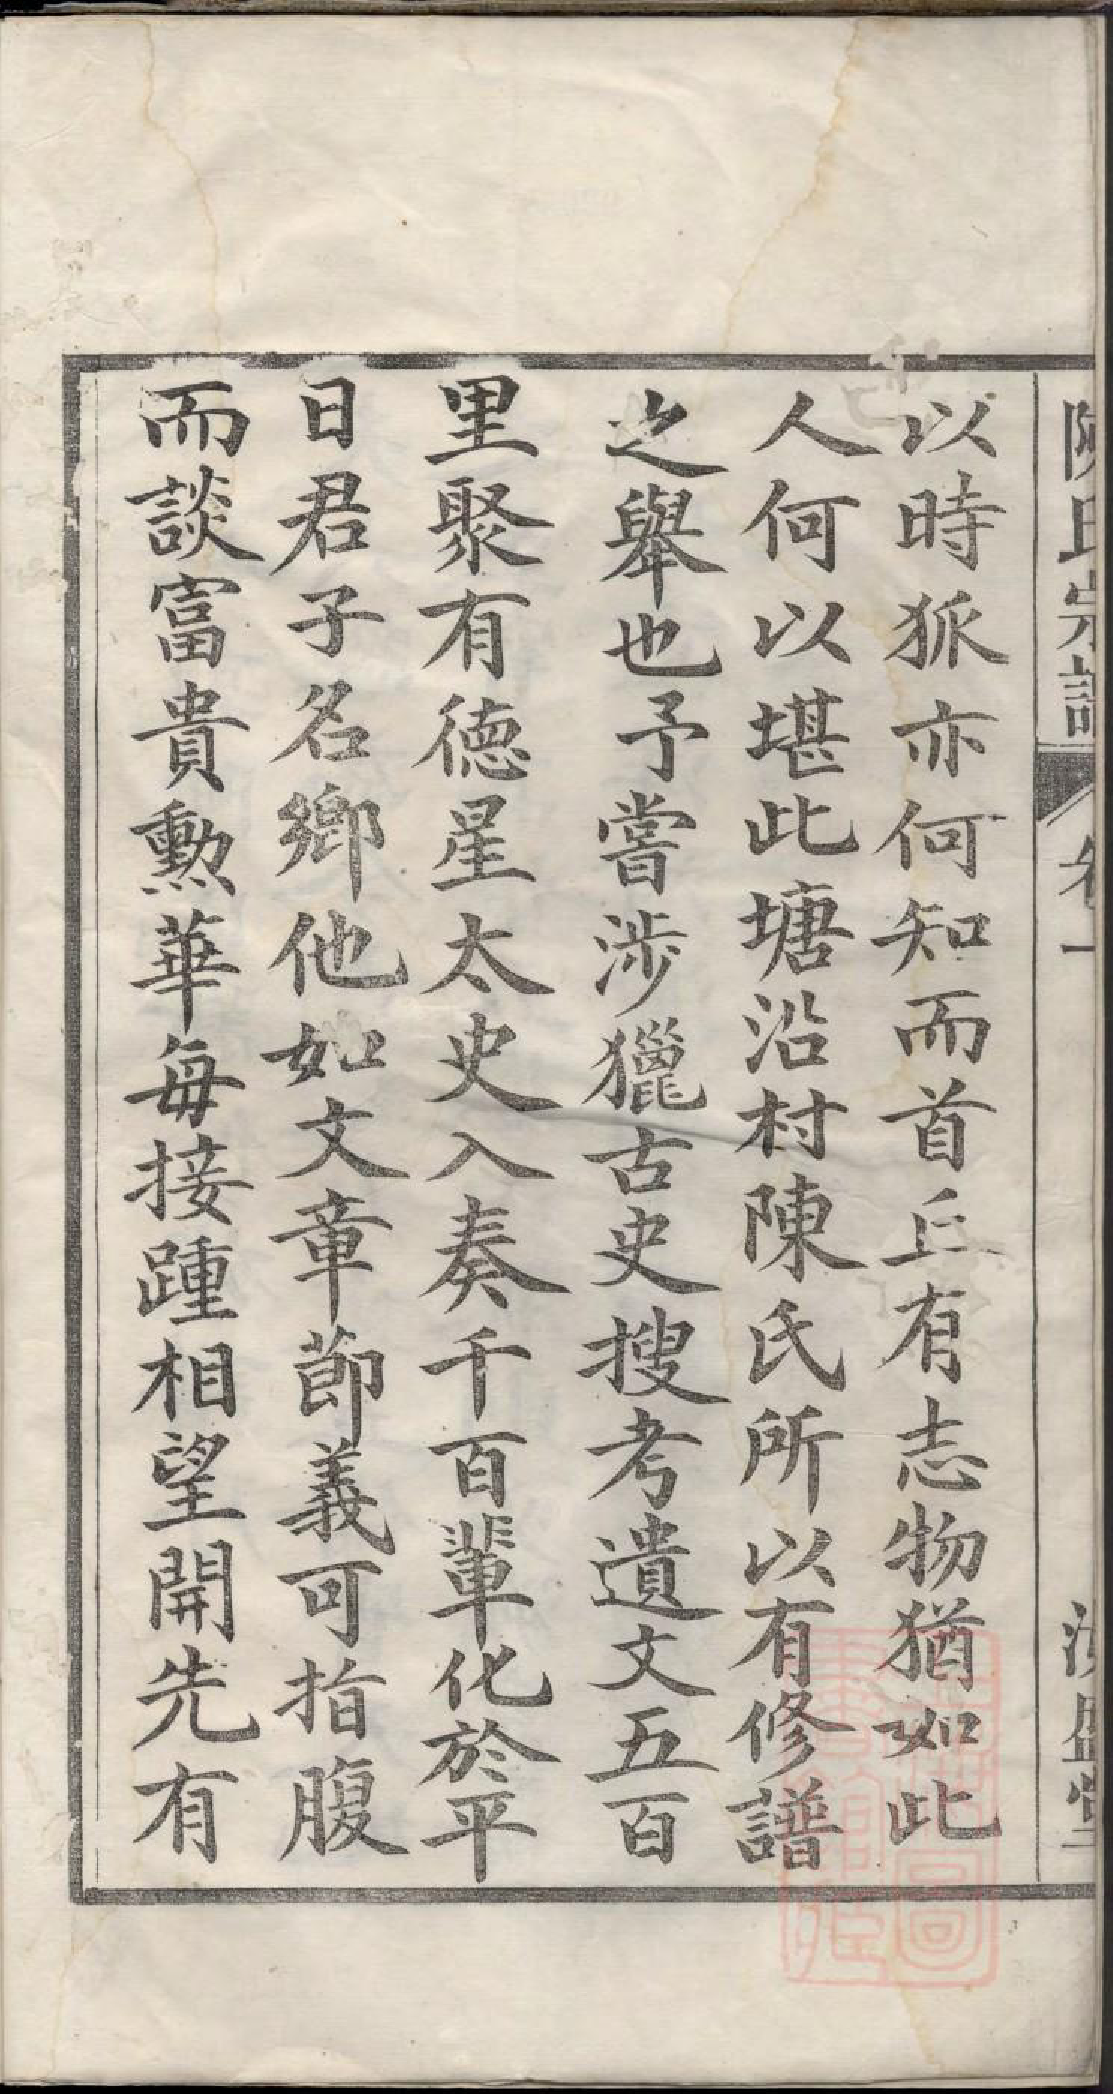 陳氏宗譜 卷一
以時狐亦何知而首丘有志物猶如此
人何以堪此塘沿村陳氏所以有修譜
之舉也予嘗涉獵古史搜考遺文五百
里聚有德星太史入奏千百軰化於平
日君子名鄉他如文章節義可指腹
而談富貴勲華每接踵相望開先有